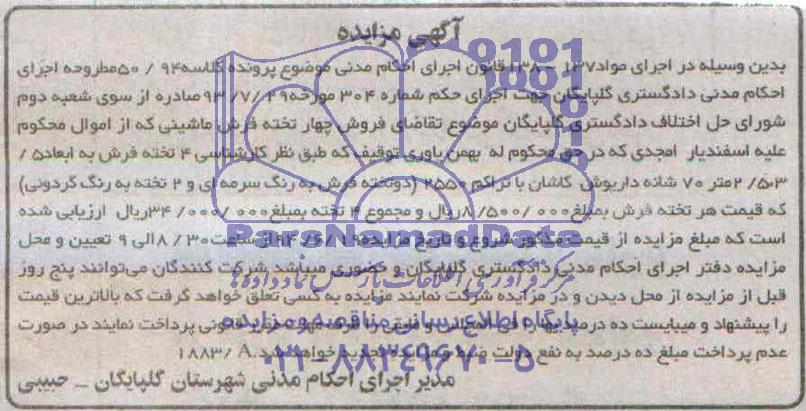 آگهی مزایده
بدین وسیله در اجرای مواد ۱۳۷ - ۱۳۸ قانون اجرای احکام مدنی موضوع پرونده کلاسه ۹۴ / ۵۰ مطروحه اجرای
احکام مدنی دادگستری گلپایگان جهت اجرای حکم شماره ۳۰۴ مورخه ۲۹ /۷/ ۹۳ صادره از سوی شعبه دوم
شورای حل اختلاف دادگستری گلپایگان موضوع تقاضای فروش چهار تخته فرش ماشینی که از اموال محکوم
علیه اسفندیار امجدی که در حق محکوم له بهمن یاوری توقیف که طبق نظر کارشناسی ۴ تخته فرش به ابعاد ۵/
۲/۵۰۳ متر ۷۰ شانه داریوش کاشان با تراکم ۲۵۵۰ (دوتخته فرش به رنگ سرمه ای و ۲ تخته به رنگ گردوئی)
که قیمت هر تخته فرش بمبلغ ۰۰۰ /۸/۵۰۰ ریال و مجموع ۴ تخته بمبلغ ۰۰۰/ ۰۰۰/ ۳۴ ریال ارزیابی شده
است که مبلغ مزایده از قیمت مذکور شروع و تاریخ مزایده ۱۹ /۶/ ۹۴ از ساعت ۳۰ /۸ الی ۹ تعیین و محل
مزایده دفتر اجرای احکام مدنی دادگستری گلپایگان و حضوری میباشد شرکت کنندگان می‌توانند پنج روز
قبل از مزایده از محل دیدن و در مزایده شرکت نمایند مزایده به کسی تعلق خواهد گرفت که بالاترین قیمت
را پیشنهاد و میبایست ده درصد بهاء را فی المجلس و مابقی را ظرف مهلت قانونی پرداخت نمایند در صورت
عدم پرداخت مبلغ ده درصد به نفع دولت ضبط و مزایده تجدید خواهد شد. ۱۸۸۳/ A
مدیر اجرای احکام مدنی شهرستان گلپایگان – حبیبی
ParsNamadData
مرکز فرآوری اطلاعات پارس نماد داده ها
پایگاه اطلاع رسانی مناقصه و مزایده
۰۲۱-۸۸۳۴۹۶۷۰-۵